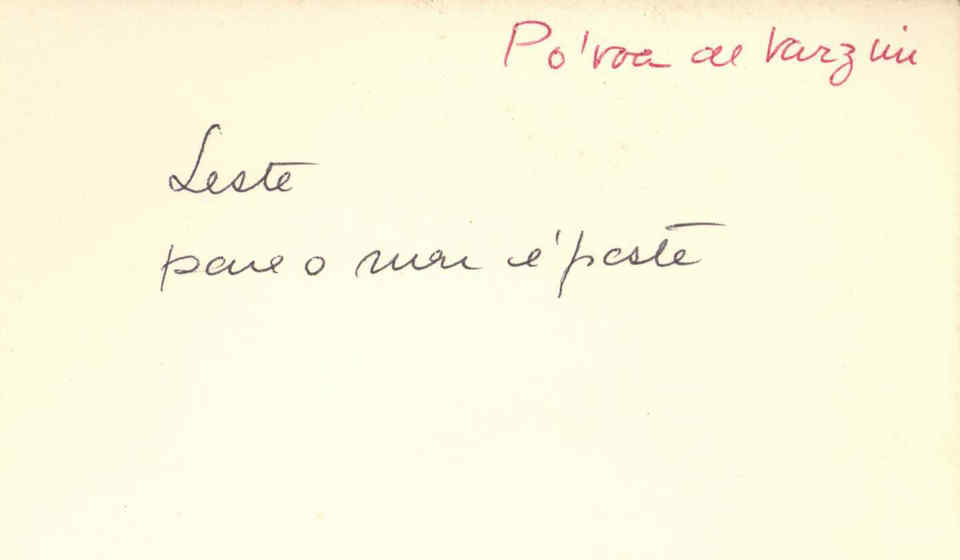 Póvoa de Varzim
Leste
para o mar é peste